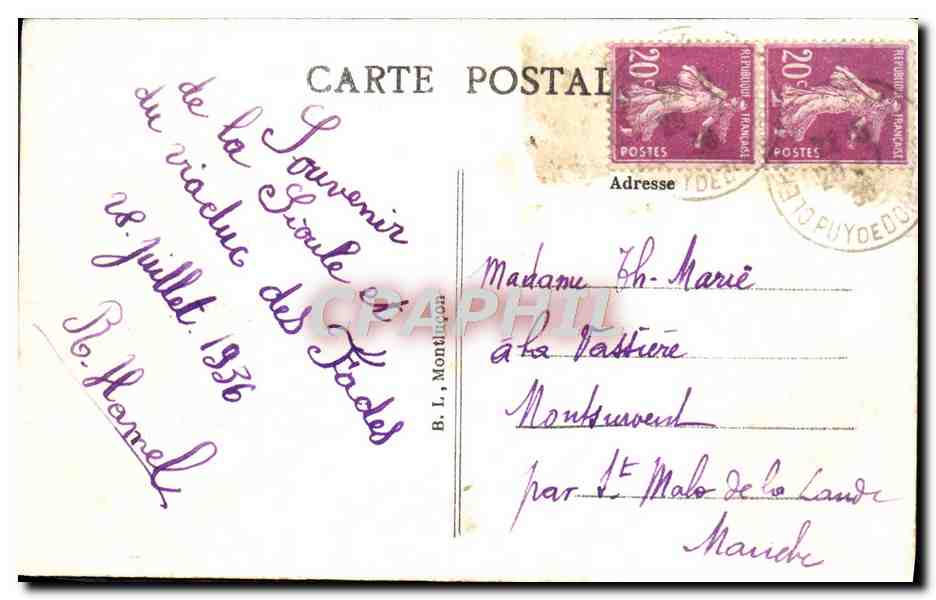 CARTE POSTAL
Souvenir
de la Sioule et
du viaduc des Fades
28. Juillet. 1936
R. Hamel
B. L., Montluçon
20c
REPUBLIQUE FRANÇAISE
POSTES
20c
REPUBLIQUE FRANÇAISE
POSTES
Adresse
PUY DE DO
PUY DE DO
Madame Th- Marie
à la Vassière
Montsurvent
par St Malo de la Lande
Manche
CPAPHIL